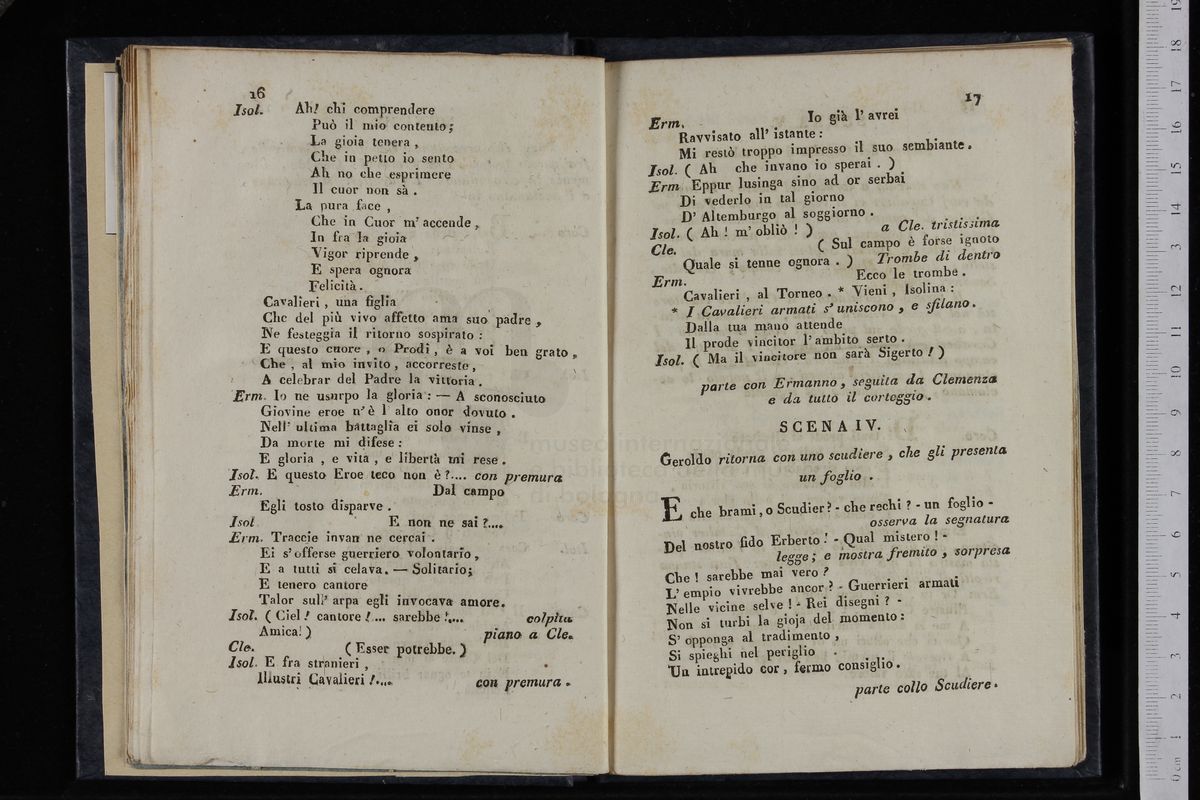 16
Isol. Ah! chi comprendere
Può il mio contento;
La gioia tenera ,
Che in petto io sento
Ah no che esprimere
Il cuor non sà .
La pura face ,
Che in Cuor m' accende ,
In fra la gioia
Vigor riprende ,
E spera ognora
Felicità .
Cavalieri , una figlia
Che del più vivo affetto ama suo padre ,
Ne festeggia il ritorno sospirato :
E questo cuore , o Prodi , è a voi ben grato ,
Che , al mio invito , accorreste ,
A celebrar del Padre la vittoria .
Erm. Io ne usurpo la gloria : — A sconosciuto
Giovine eroe n' è l alto onor dovuto .
Nell' ultima battaglia ei solo vinse ,
Da morte mi difese :
E gloria , e vita , e libertà mi rese .
Isol. E questo Eroe teco non è ?.... con premura
Erm. Dal campo
Egli tosto disparve .
Isol E non ne sai ?....
Erm. Traccie invan ne cercai .
Ei s' offerse guerriero volontario ,
E a tutti si celava. — Solitario;
E tenero cantore
Talor sull' arpa egli invocava amore.
Isol. ( Ciel ! cantore !... sarebbe !.... colpita
Amica! ) piano a Cle.
Cle. ( Esser potrebbe. )
Isol. E fra stranieri ,
Illustri Cavalieri !.... con premura .
17
Erm. Io già l' avrei
Ravvisato all' istante :
Mi restò troppo impresso il suo sembiante .
Isol. ( Ah che invano io sperai . )
Erm Eppur lusinga sino ad or serbai
Di vederlo in tal giorno
D' Altemburgo al soggiorno .
Isol. ( Ah ! m' obliò ! ) a Cle. tristissima
Cle. ( Sul campo è forse ignoto
Quale si tenne ognora . ) Trombe di dentro
Erm. Ecco le trombe .
Cavalieri , al Torneo . * Vieni , Isolina :
* I Cavalieri armati s' uniscono , e sfilano .
Dalla tua mano attende
Il prode vincitor l' ambito serto .
Isol. ( Ma il vincitore non sarà Sigerto ! )
parte con Ermanno , seguita da Clemenza
e da tutto il corteggio .
SCENA IV.
Geroldo ritorna con uno scudiere , che gli presenta
un foglio .
E che brami , o Scudier? - che rechi ? - un foglio -
osserva la segnatura
Del nostro fido Erberto ! - Qual mistero ! -
legge ; e mostra fremito , sorpresa
Che ! sarebbe mai vero ?
L' empio vivrebbe ancor ? - Guerrieri armati
Nelle vicine selve ! - Rei disegni ? -
Non si turbi la gioja del momento :
S' opponga al tradimento ,
Si spieghi nel periglio
Un intrepido cor , fermo consiglio .
parte collo Scudiere .